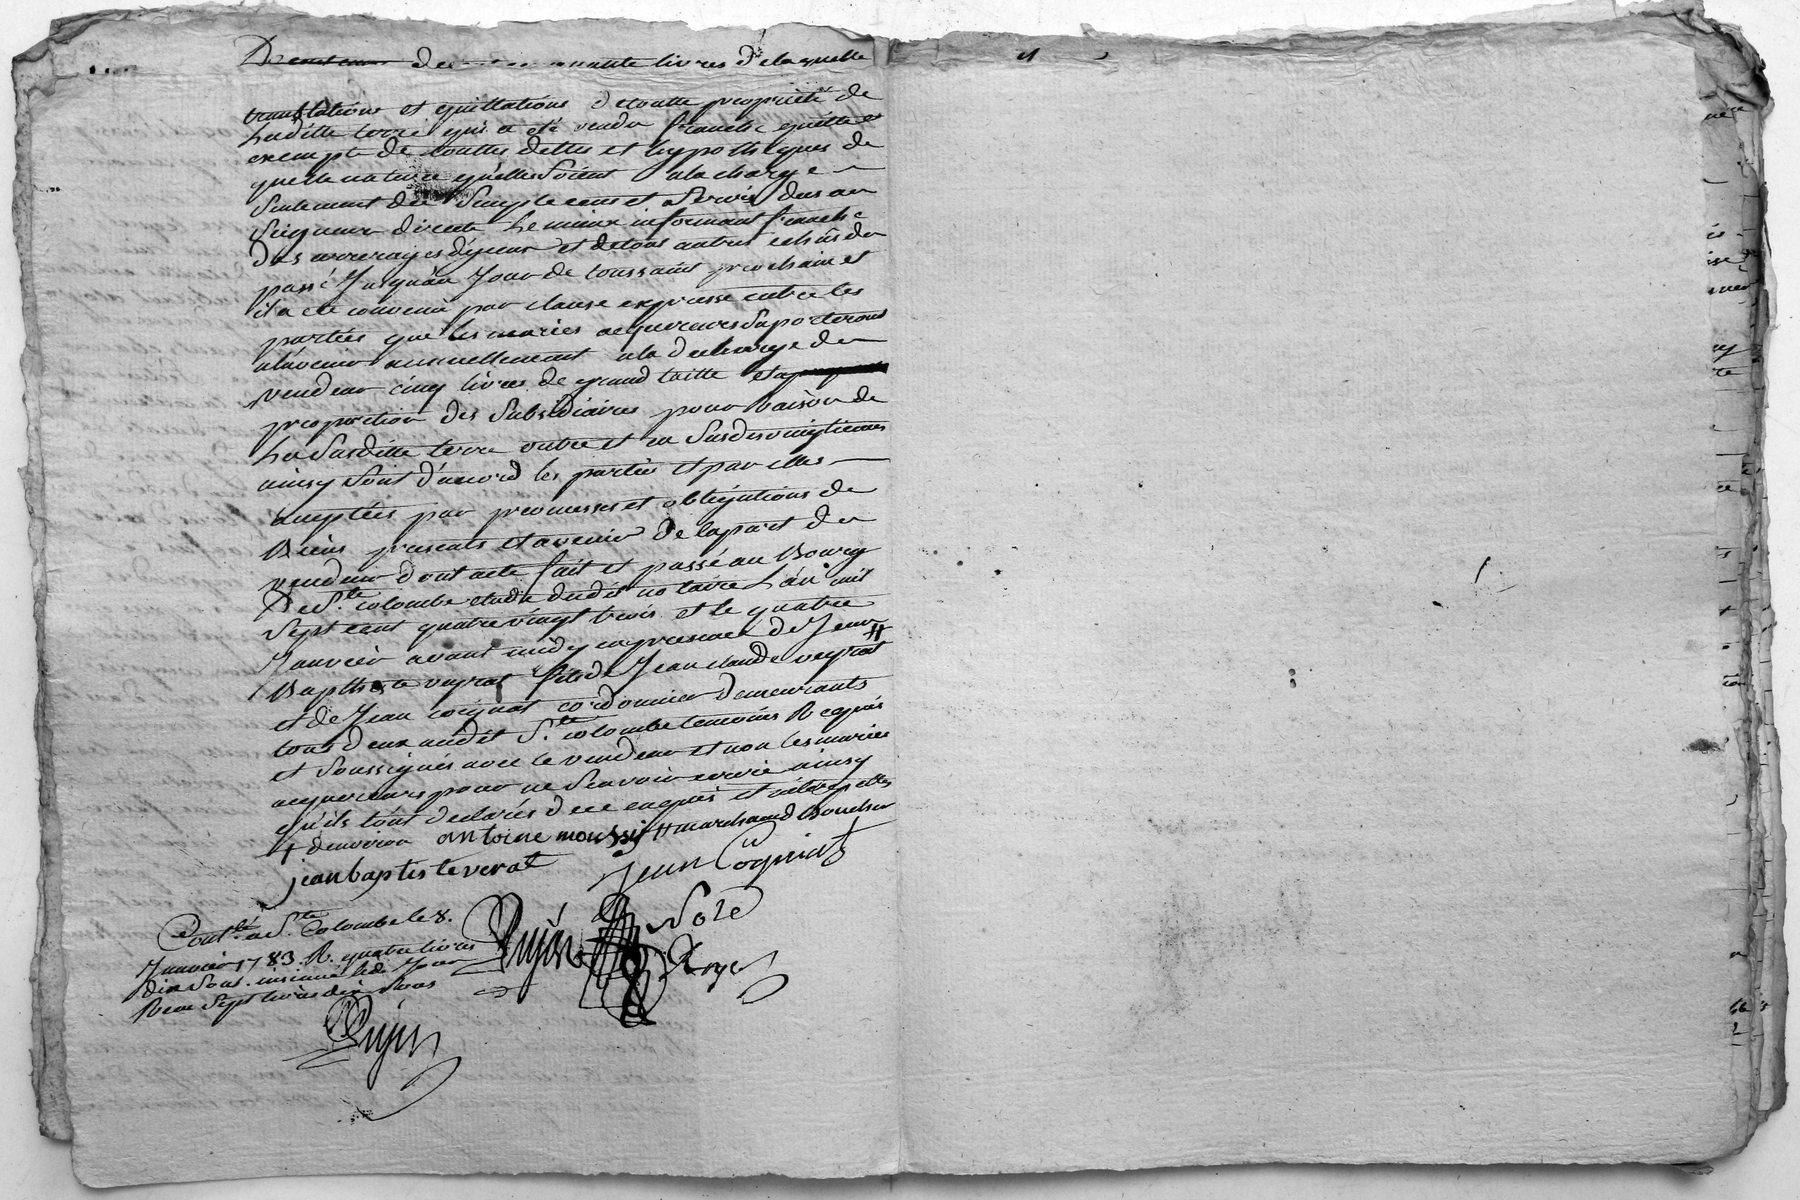 livres de laquelle
translations et quittations de toutte propriété de
la ditte terre qui a été vendu franche quitte et
exempte de touttes dettes et hypotheques de
quelle nature qu'elles soient a la charge
seulement du simple cens et servis dus au
seigneur direct le mieux informant franche
des arrerages d'yceux et de tous autres echûs du
passé jusqu'au jour de toussaint prochain et
il a été convenu par clause expresse entre les
parties que les mariés acquereurs suporteront
a l'avenir annuellement a la decharge du
vendeur cinq livres de grand taille et a
proportion des subsidiaires pour raison de
la susditte terre outre et en sus des vingtiemes
ainsy sont d'accord les parties et par elles
acceptées par promesses et obligations de
Biens presents et avenir de la part du
vendeur dont acte fait et passé au Bourg
De Ste. colombe etude dudit notaire L'an mil
sept cent quatre vingt trois et le quatre
Janvier avant midy en presence de Jean #
Baptiste veyrat fils de Jean claude veyrat
et de Jean coignat cordonnier demeurants
tous deux audit Ste. colombe temoins Requis
et soussignés avec le vendeur et non les mariés
acquereurs pour ne sçavoir ecrire ainsy
qu'ils l'ont declarés de ce enquis et interpellés
+ d'environ antoine moussy # marchand Boucher
jean baptiste verat Jean Cogniat
Contlé. a Ste. Colombe le 8.
Janvier 1783. R. quatre livres
dix sous. insinué led. Jour
Reçu sept livres dix sous
Pujin
Note
Royal
Pujin